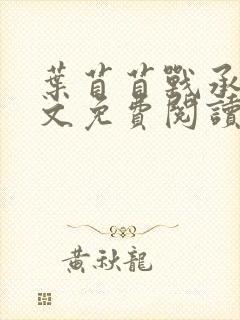 葉苜苜戰承
文免費閱讀
黃秋龍